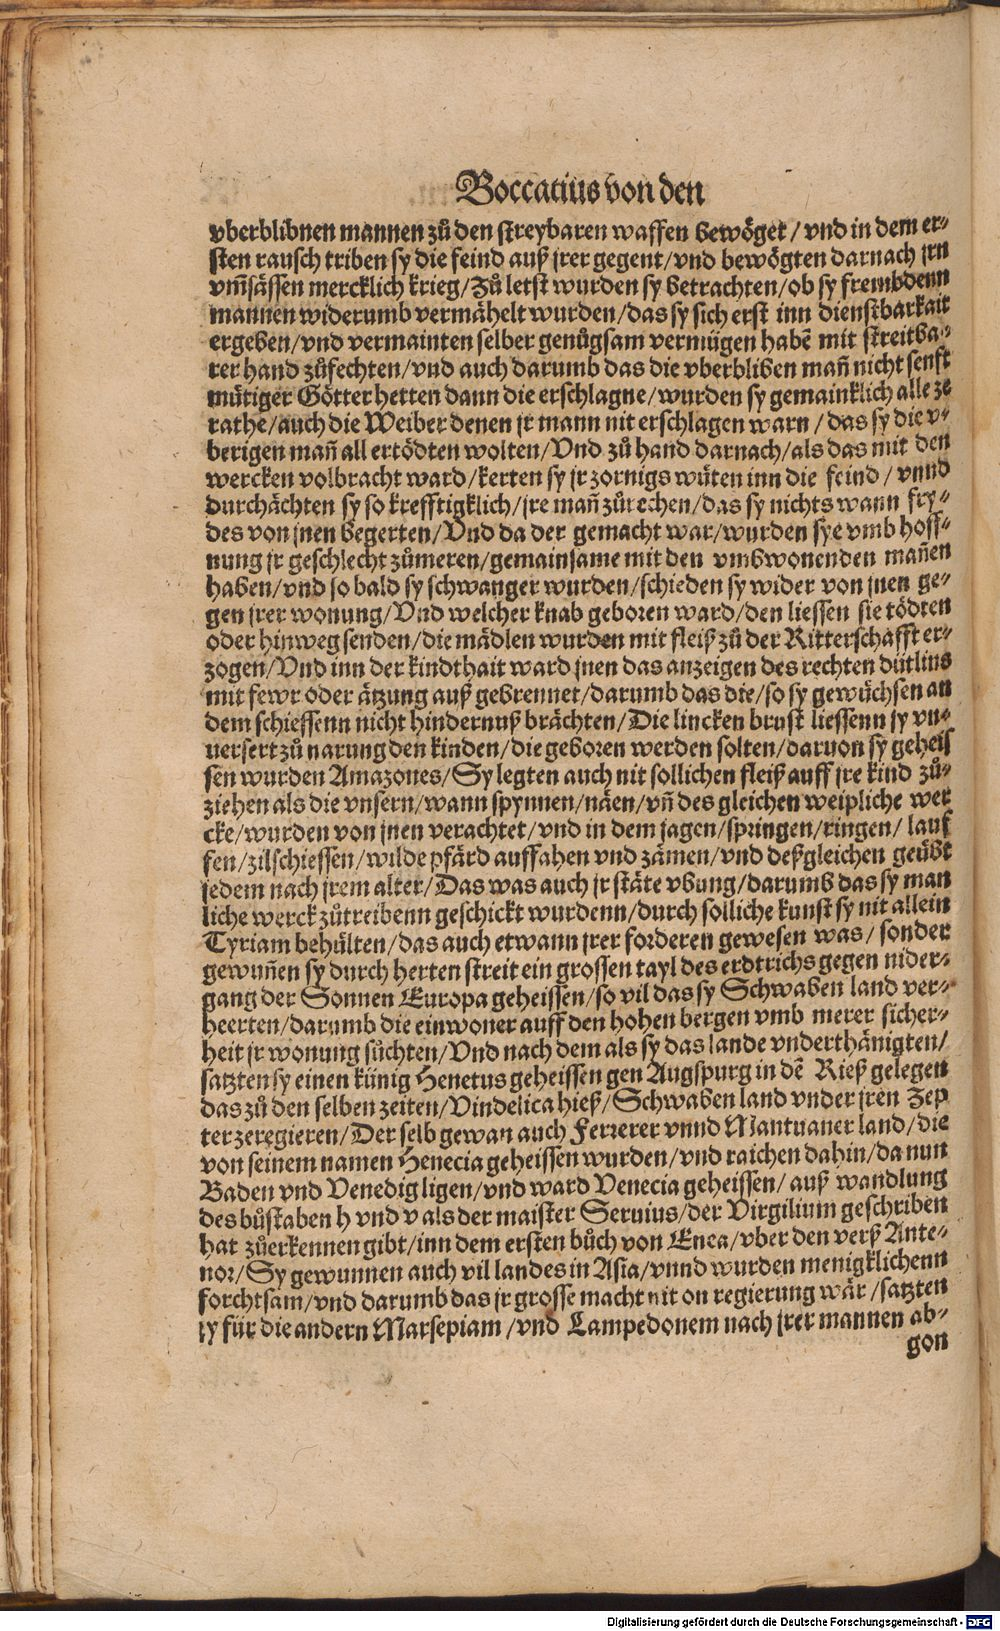 Boccatius von den
vberblibnen mannen zů den streybaren waffen bewöget / vnd in dem er-
sten rausch triben sy die feind auß jrer gegent / vnd bewögten darnach jrn
vm̃sässen mercklich krieg / Zů letst wurden sy betrachten / ob sy frembdenn
mannen widerumb vermähelt wurden / das sy sich erst inn dienstbarkait
ergeben / vnd vermainten selber genůgsam vermügen habẽ mit streitba-
rer hand zůfechten / vnd auch darumb das die vberbliben mañ nicht senft
mütiger Götter hetten dann die erschlagne / wurden sy gemainklich alle ze
rathe / auch die Weiber denen jr mann nit erschlagen warn / das sy die v-
berigen mañ all ertödten wolten / Vnd zů hand darnach / als das mit den
wercken volbracht ward / kerten sy jr zornigs wüten inn die feind / vnnd
durchächten sy so krefftigklich / jre mañ zůrechen / das sy nichts wann fry-
des von jnen begerten / Vnd da der gemacht war / wurden sye vmb hoff-
nung jr geschlecht zůmeren / gemainsame mit den vmbwonenden mañen
haben / vnd so bald sy schwanger wurden / schieden sy wider von jnen ge-
gen jrer wonung / Vnd welcher knab geboren ward / den liessen sie tödten
oder hinweg senden / die mädlen wurden mit fleiß zů der Ritterschafft er-
zogen / Vnd inn der kindthait ward jnen das anzeigen des rechten dütlins
mit fewr oder ätzung auß gebrennet / darumb das die / so sy gewüchsen an
dem schiessenn nicht hindernuß brächten / Die lincken brust liessenn sy vn-
uersert zů narung den kinden / die geboren werden solten / daruon sy geheis
sen wurden Amazones / Sy legten auch nit sollichen fleiß auff jre kind zů-
ziehen als die vnsern / wann spynnen / näen / vñ des gleichen weipliche wer
cke / wurden von jnen verachtet / vnd in dem jagen / springen / ringen / lauf
fen / zilschiessen / wilde pfärd auffahen vnd zämen / vnd deßgleichen geübt
jedem nach jrem alter / Das was auch jr stäte vbung / darumb das sy man
liche werck zůtreibenn geschickt wurdenn / durch solliche kunst sy nit allein
Tyriam behülten / das auch etwann jrer forderen gewesen was / sonder
gewuñen sy durch herten streit ein grossen tayl des erdtrichs gegen nider-
gang der Sonnen Europa geheissen / so vil das sy Schwaben land ver-
heerten / darumb die einwoner auff den hohen bergen vmb merer sicher-
heit jr wonung süchten / Vnd nach dem als sy das lande vnderthänigten /
satzten sy einen künig Henetus geheissen gen Augspurg in dẽ Rieß gelegen
das zů den selben zeiten / Vindelica hieß / Schwaben land vnder jren Zep
ter zeregieren / Der selb gewan auch Ferrerer vnnd Mantuaner land / die
von seinem namen Henecia geheissen wurden / vnd raichen dahin / da nun
Baden vnd Venedig ligen / vnd ward Venecia geheissen / auß wandlung
des bůstaben h vnd v als der maister Seruius / der Virgilium geschriben
hat zůerkennen gibt / inn dem ersten bůch von Enea / vber den verß Ante-
nor / Sy gewunnen auch vil landes in Asia / vnnd wurden menigklichenn
forchtsam / vnd darumb das jr grosse macht nit on regierung wär / satzten
sy für die andern Marsepiam / vnd Lampedonem nach jrer mannen ab-
gon
Digitalisierung gefördert durch die Deutsche Forschungsgemeinschaft - DFG